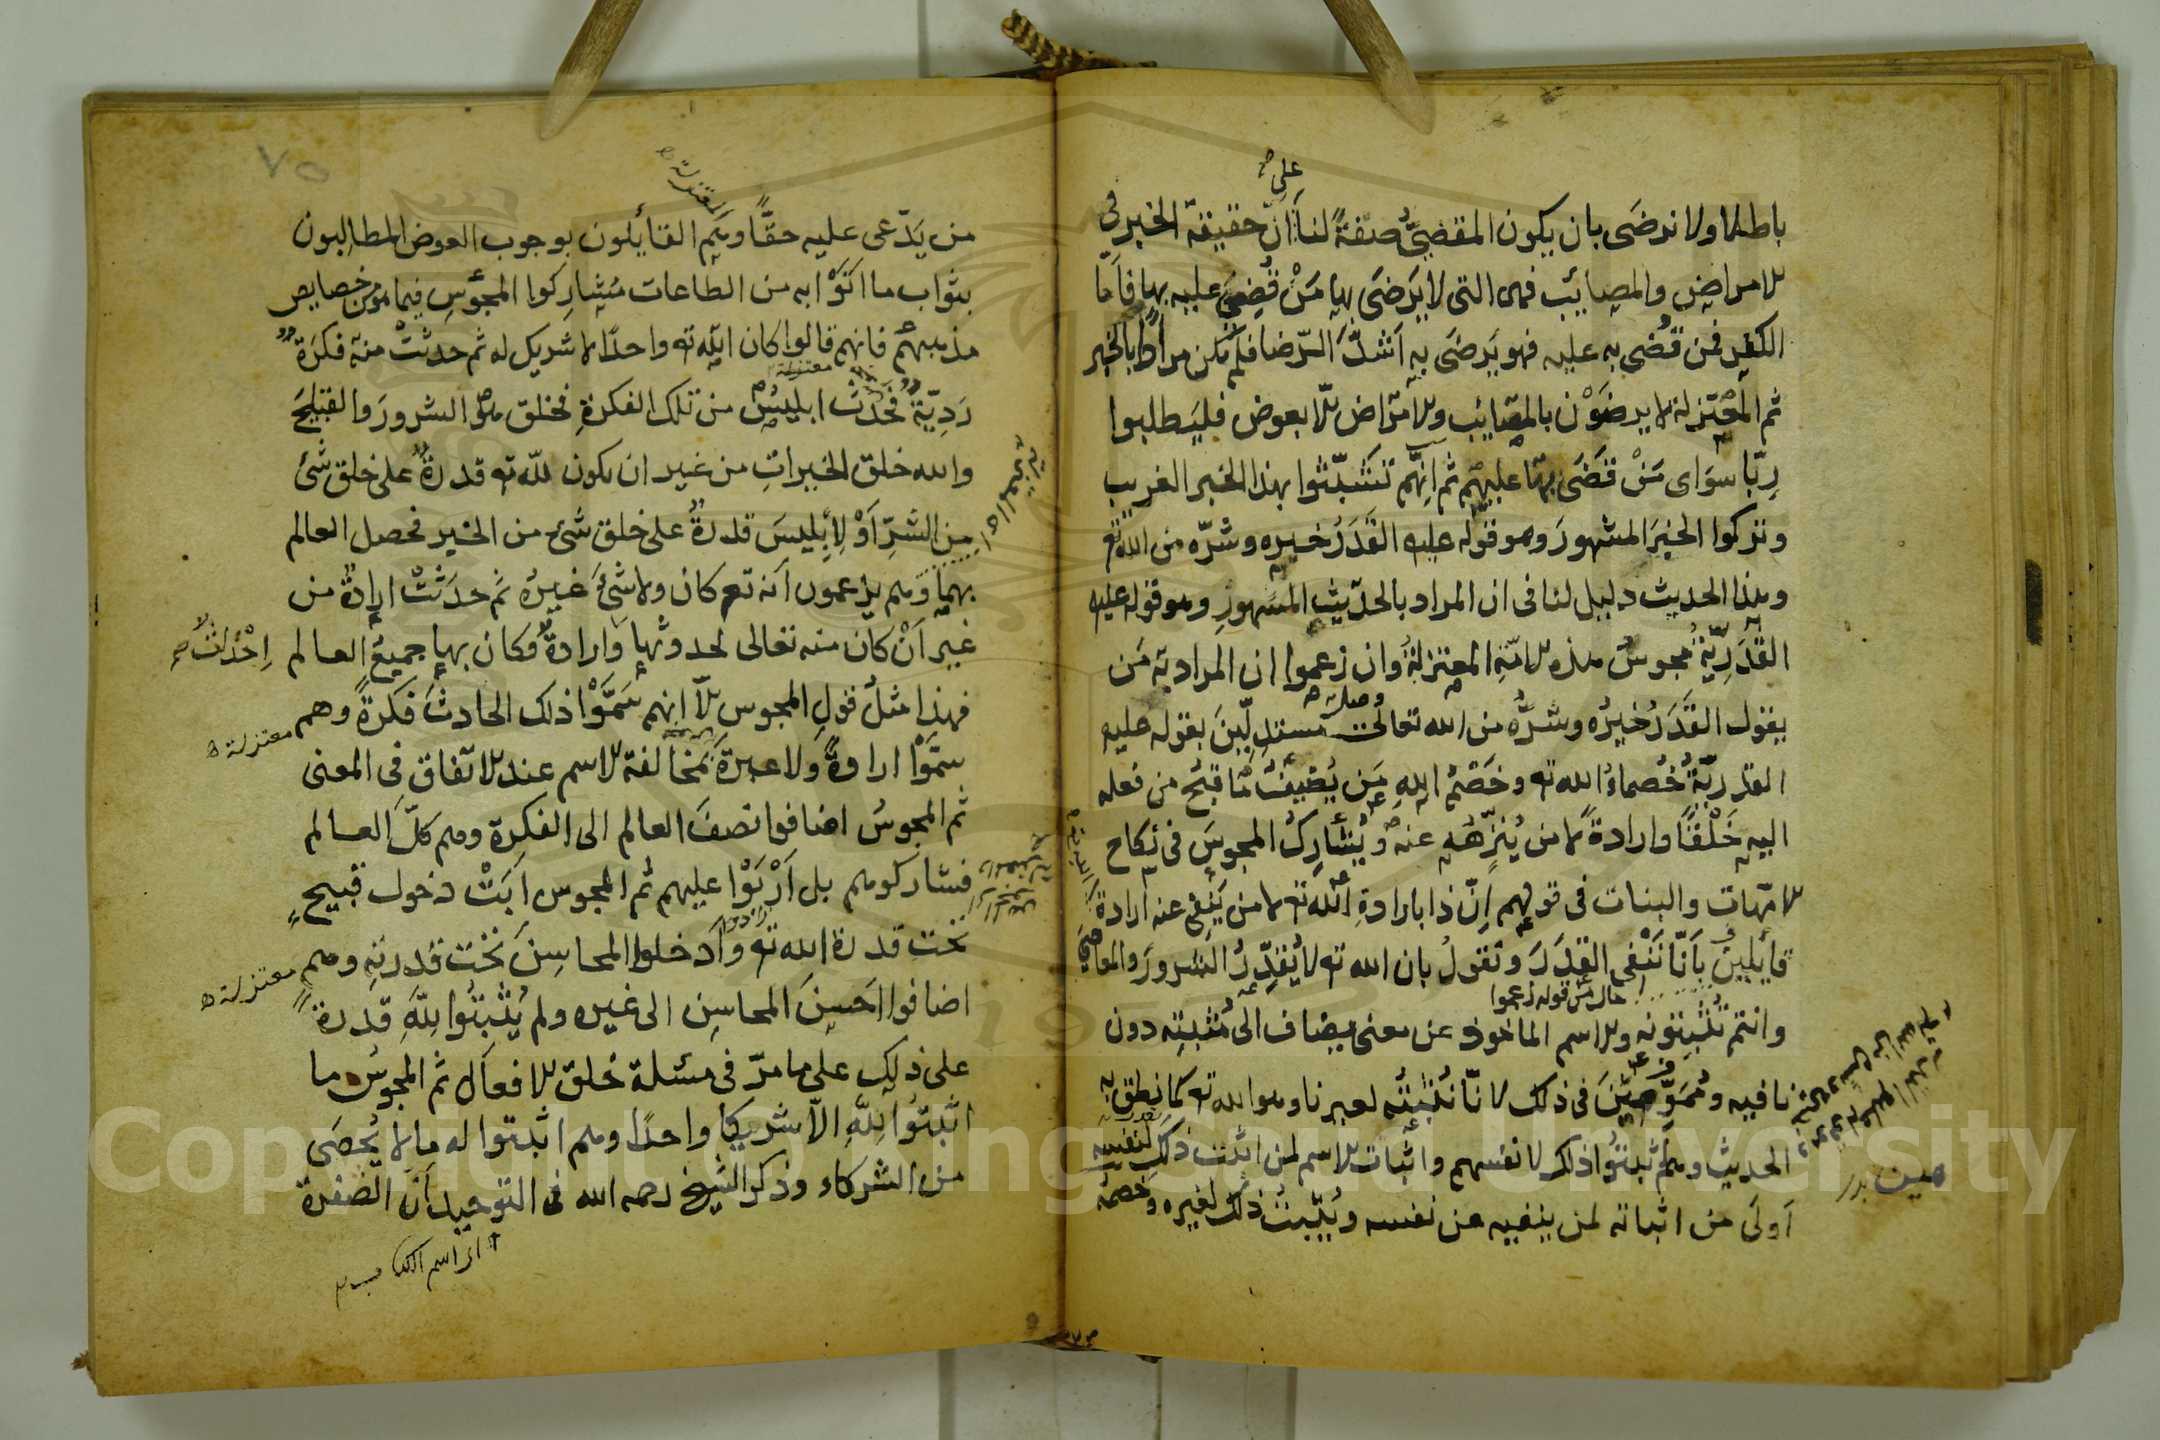 على صح
باطلا ولا نرضى بان يكون المقضيُّ صفةً لنا أنّ حقيقة الخبر فى
الامراض والمصائب فهى التى لا يَرضَى بها مَنْ قُضِىَ عليه بها فأمّا
الكفر فمن قُضى به عليه فهو يَرضَى به اَشدَّ الرّضا فلم يكن مرادًا بالخبر
ثم المعتزلة لا يرضَوْن بالمصائب والامراض الّا بعوض فليَطلبوا
رِبّا سوَاى مَنْ قَضَى بها عليهم ثم انهم تَشبّثوا بهذا الخبر الغريب
وتركوا الخبرَ المشهورَ وهو قوله عليه القَدَرُ خيره وشرّه من الله تع
وهذا الحديث دليل لنا فى ان المراد بالحديثِ المشهورِ وهو قوله عليه
القَدَرِيّةُ مجوسُ هذه الامّةِ المعتزلةُ وان زعموا ان المراد به مَن
يقول القَدَرُ خيرُه وشرُّه من الله تعالى مستدلِّينَ بقوله عليه
القدريّةُ خُصماءُ الله ته وخَصْمُ اللهِ مَن يُضيفُ ما قبُح من فعله
اليه خَلْقًا وارادةً لا من يُنزِّهُه عنه ويُشارِكُ المجوسَ فى نكاح
الامّهات والبنات فى قولهم إنّ ذا بارادةِ الله ته لا من يَنفِى عنه ارادة
قايلينَ بأنّا نَنْفى القدَرَ ونقولُ بان الله ته لا يُقدِّرُ الشرورَ والمعاصِىَ
حال من قوله زعموا
وانتم تُثْبِتونه والاسم الماخوذ عن معنى يضاف الى مُثبِتِه دون
نافيه ومُمَوِّهينَ فى ذلك لانّا نُثْبِتُه لغيرنا وهو الله ته كما نطق به
الحديث وهم ثبتُوا ذلك لانفسهم واثبات الاسم لمن اثبت ذلك لنفسه
اَولَى من اثباته لمن ينفيه عن نفسه ويُثبِتُ ذلك لغيره وخصمُه
٧٥
المعتزلة ه
من يَدّعى عليه حقًّا وهم القائلون بوجوب العوض المطالبون
بثواب ما اتَوْا به من الطاعات مُشارِكوا المجوسِ فيما هو من خصايص
مذهبهم فانهم قالوا كان الله ته واحدًا لا شريك له ثم حدثتْ منه فكرَة
رَدِيّةٌ فحَدَثَ ابليسُ من تلك الفكرةِ فخلق هو الشرورَ والقبايحَ
والله خلق الخيراتِ من غير ان يكون لله ته قدرةٌ على خلق شئ
من الشرِّ اَوْ لِإبليسَ قدرةٌ على خلق شئ من الخير فحصل العالم
بهما وهم يزعمون اَنه تع كان ولا شئَ غيرُه ثم حدَثتْ ارادةٌ من
غير اَنْ كان منه تعالى لحدوثها وارادةٌ فكان بها جميعُ العالم
إحْدَاثٌ صح
فهذا مثلُ قولِ المجوس الّا انهم سَمَّوْا ذلك الحادثَ فكرةً وهم
معتزلة ه
سمَّوْا ارادةً ولا عبرةَ بمخالفة الاسم عند الاتفاق فى المعنى
ثم المجوسُ اضافوا نصفَ العالم الى الفكرة وهم كلَّ العالم
فشاركوهم بل اَرْبَوْا عليهم ثم المجوس ابَتْ دخول قبيحٍ
تحت قدرة الله ته واَدخلوا المحاسِنَ تحْت قدرتِه وهم
معتزلة ه
اضافوا اَحسنَ المحاسِن الى غيره ولم يُثبِتُوا لِلّهِ قدرةً
على ذلك على ما مرّ فى مسئلة خلق الافعال ثم المجوسُ ما
اثبتُوا لِلّهِ الّا شريكا واحدًا وهم اثبتوا له ما لا يُحصَى
من الشركاء وذكر الشيخ رحمه الله فى التوحيد اَنّ الصفرة
اى اسم الكتاب